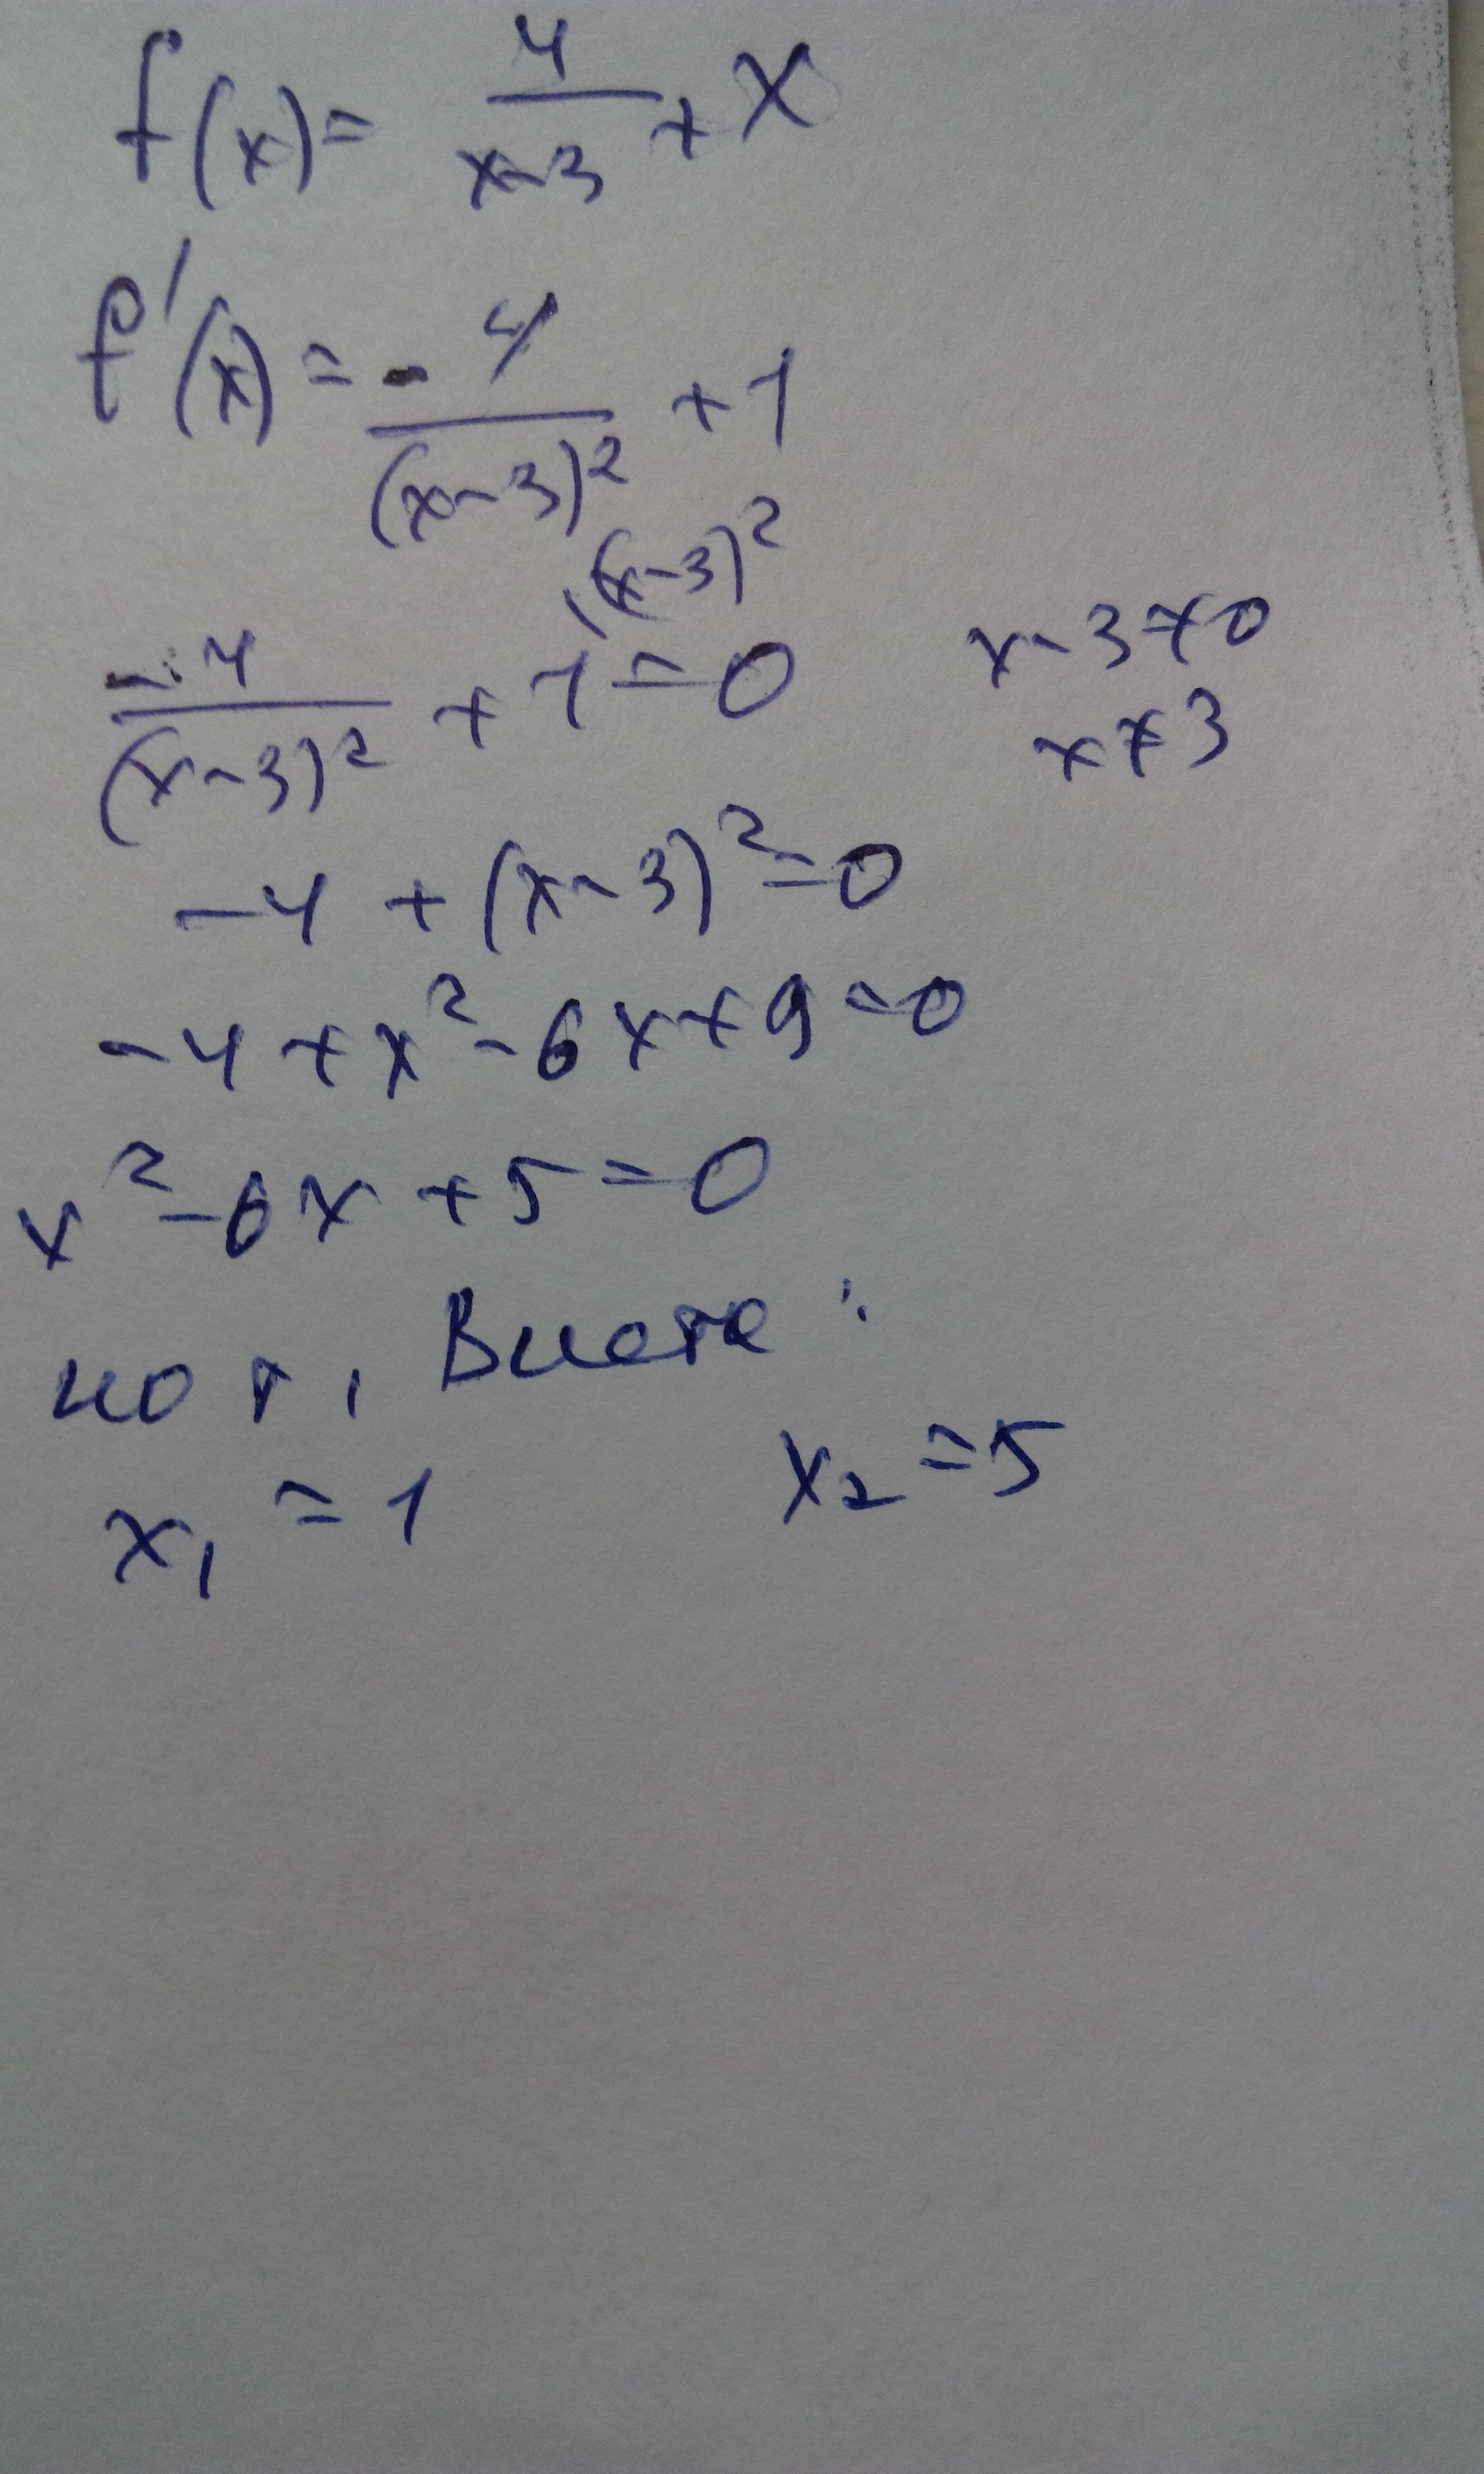 f(x)= 4/(x-3) + x
f'(x)= -4/(x-3)² + 1
-4/(x-3)² + 1 \(x-3)² = 0
x-3≠0
x≠3
-4 + (x-3)²=0
-4 + x²-6x+9=0
x²-6x+5=0
по т. Виета:
x₁ = 1 x₂ = 5